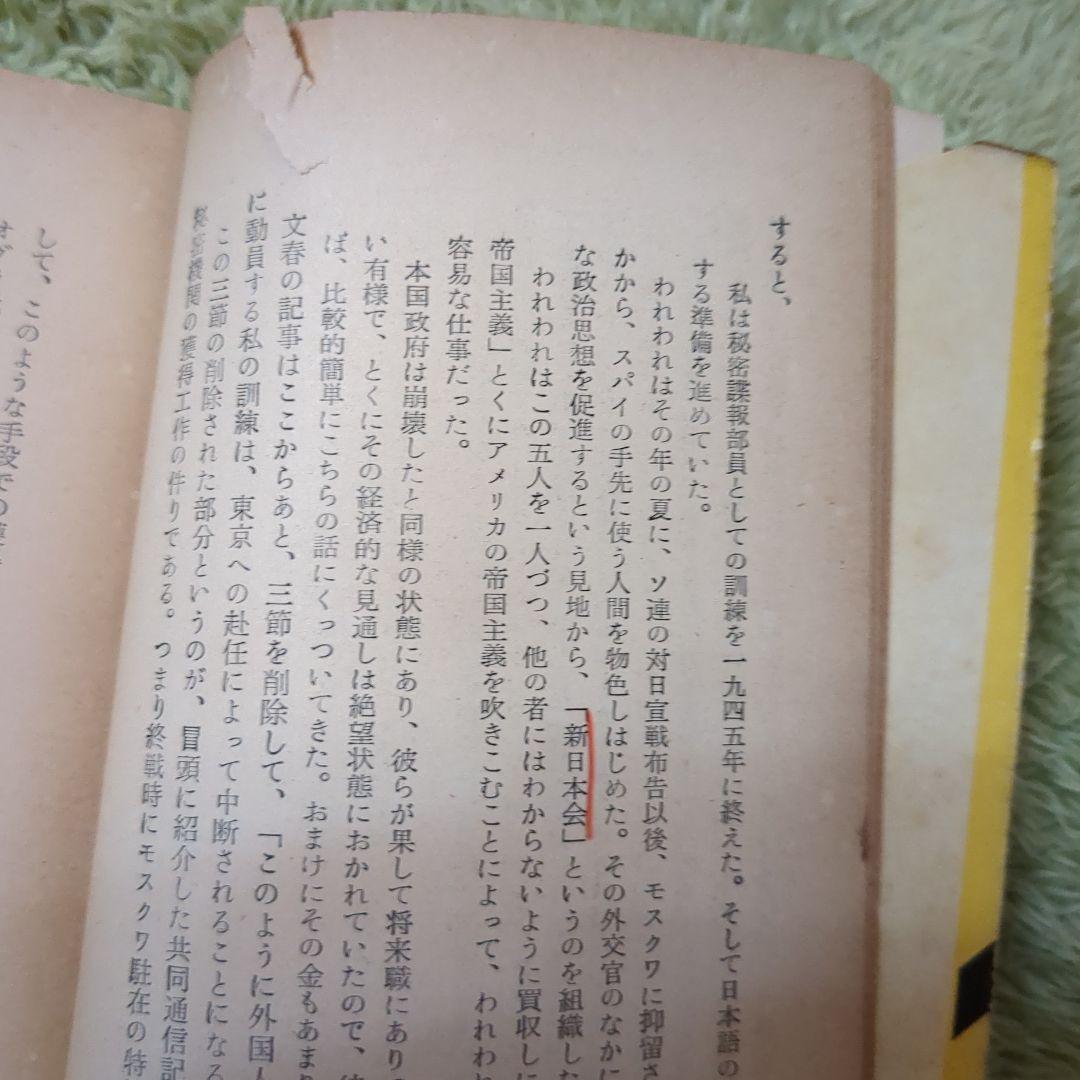 すると、
私は秘密諜報部員としての訓練を一九四五年に終えた。そして日本語の
する準備を進めていた。
われわれはその年の夏に、ソ連の対日宣戦布告以後、モスクワに抑留さ
かから、スパイの手先に使う人間を物色しはじめた。その外交官のなかに
な政治思想を促進するという見地から、「新日本会」というのを組織した
われわれはこの五人を一人づつ、他の者にはわからないように買収しに
帝国主義」とくにアメリカの帝国主義を吹きこむことによって、われわれ
容易な仕事だった。
本国政府は崩壊したと同様の状態にあり、彼らが果して将来職にあり
い有様で、とくにその経済的な見通しは絶望状態におかれていたので、
ば、比較的簡単にこちらの話にくっついてきた。おまけにその金もあまり
文春の記事はここからあと、三節を削除して、「このように外国人
に動員する私の訓練は、東京への赴任によって中断されることになる
この三節の削除された部分というのが、冒頭に紹介した共同通信記
秘密機関の獲得工作の件りである。つまり終戦時にモスクワ駐在の特
して、このような手段での